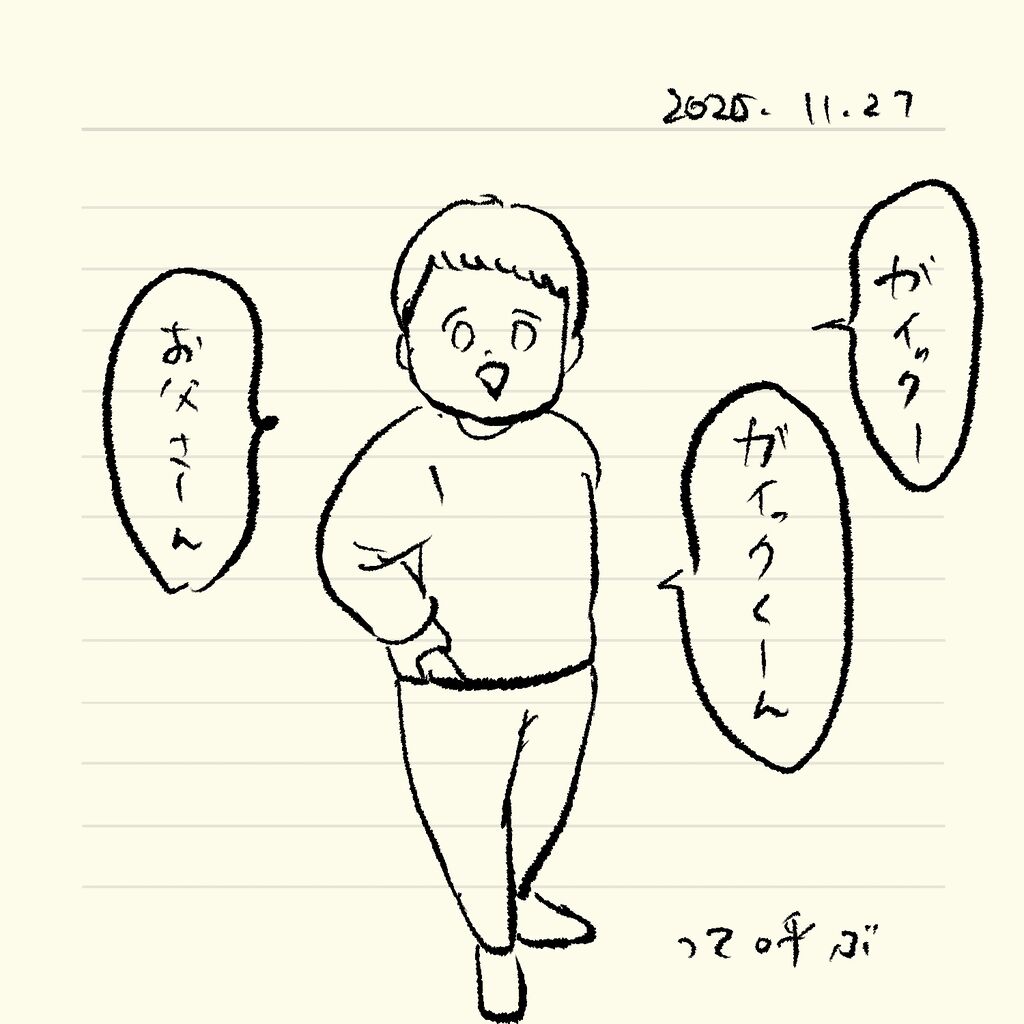 2025. 11.27
ガイックー
ガイックくーん
お父さーん
って呼ぶ